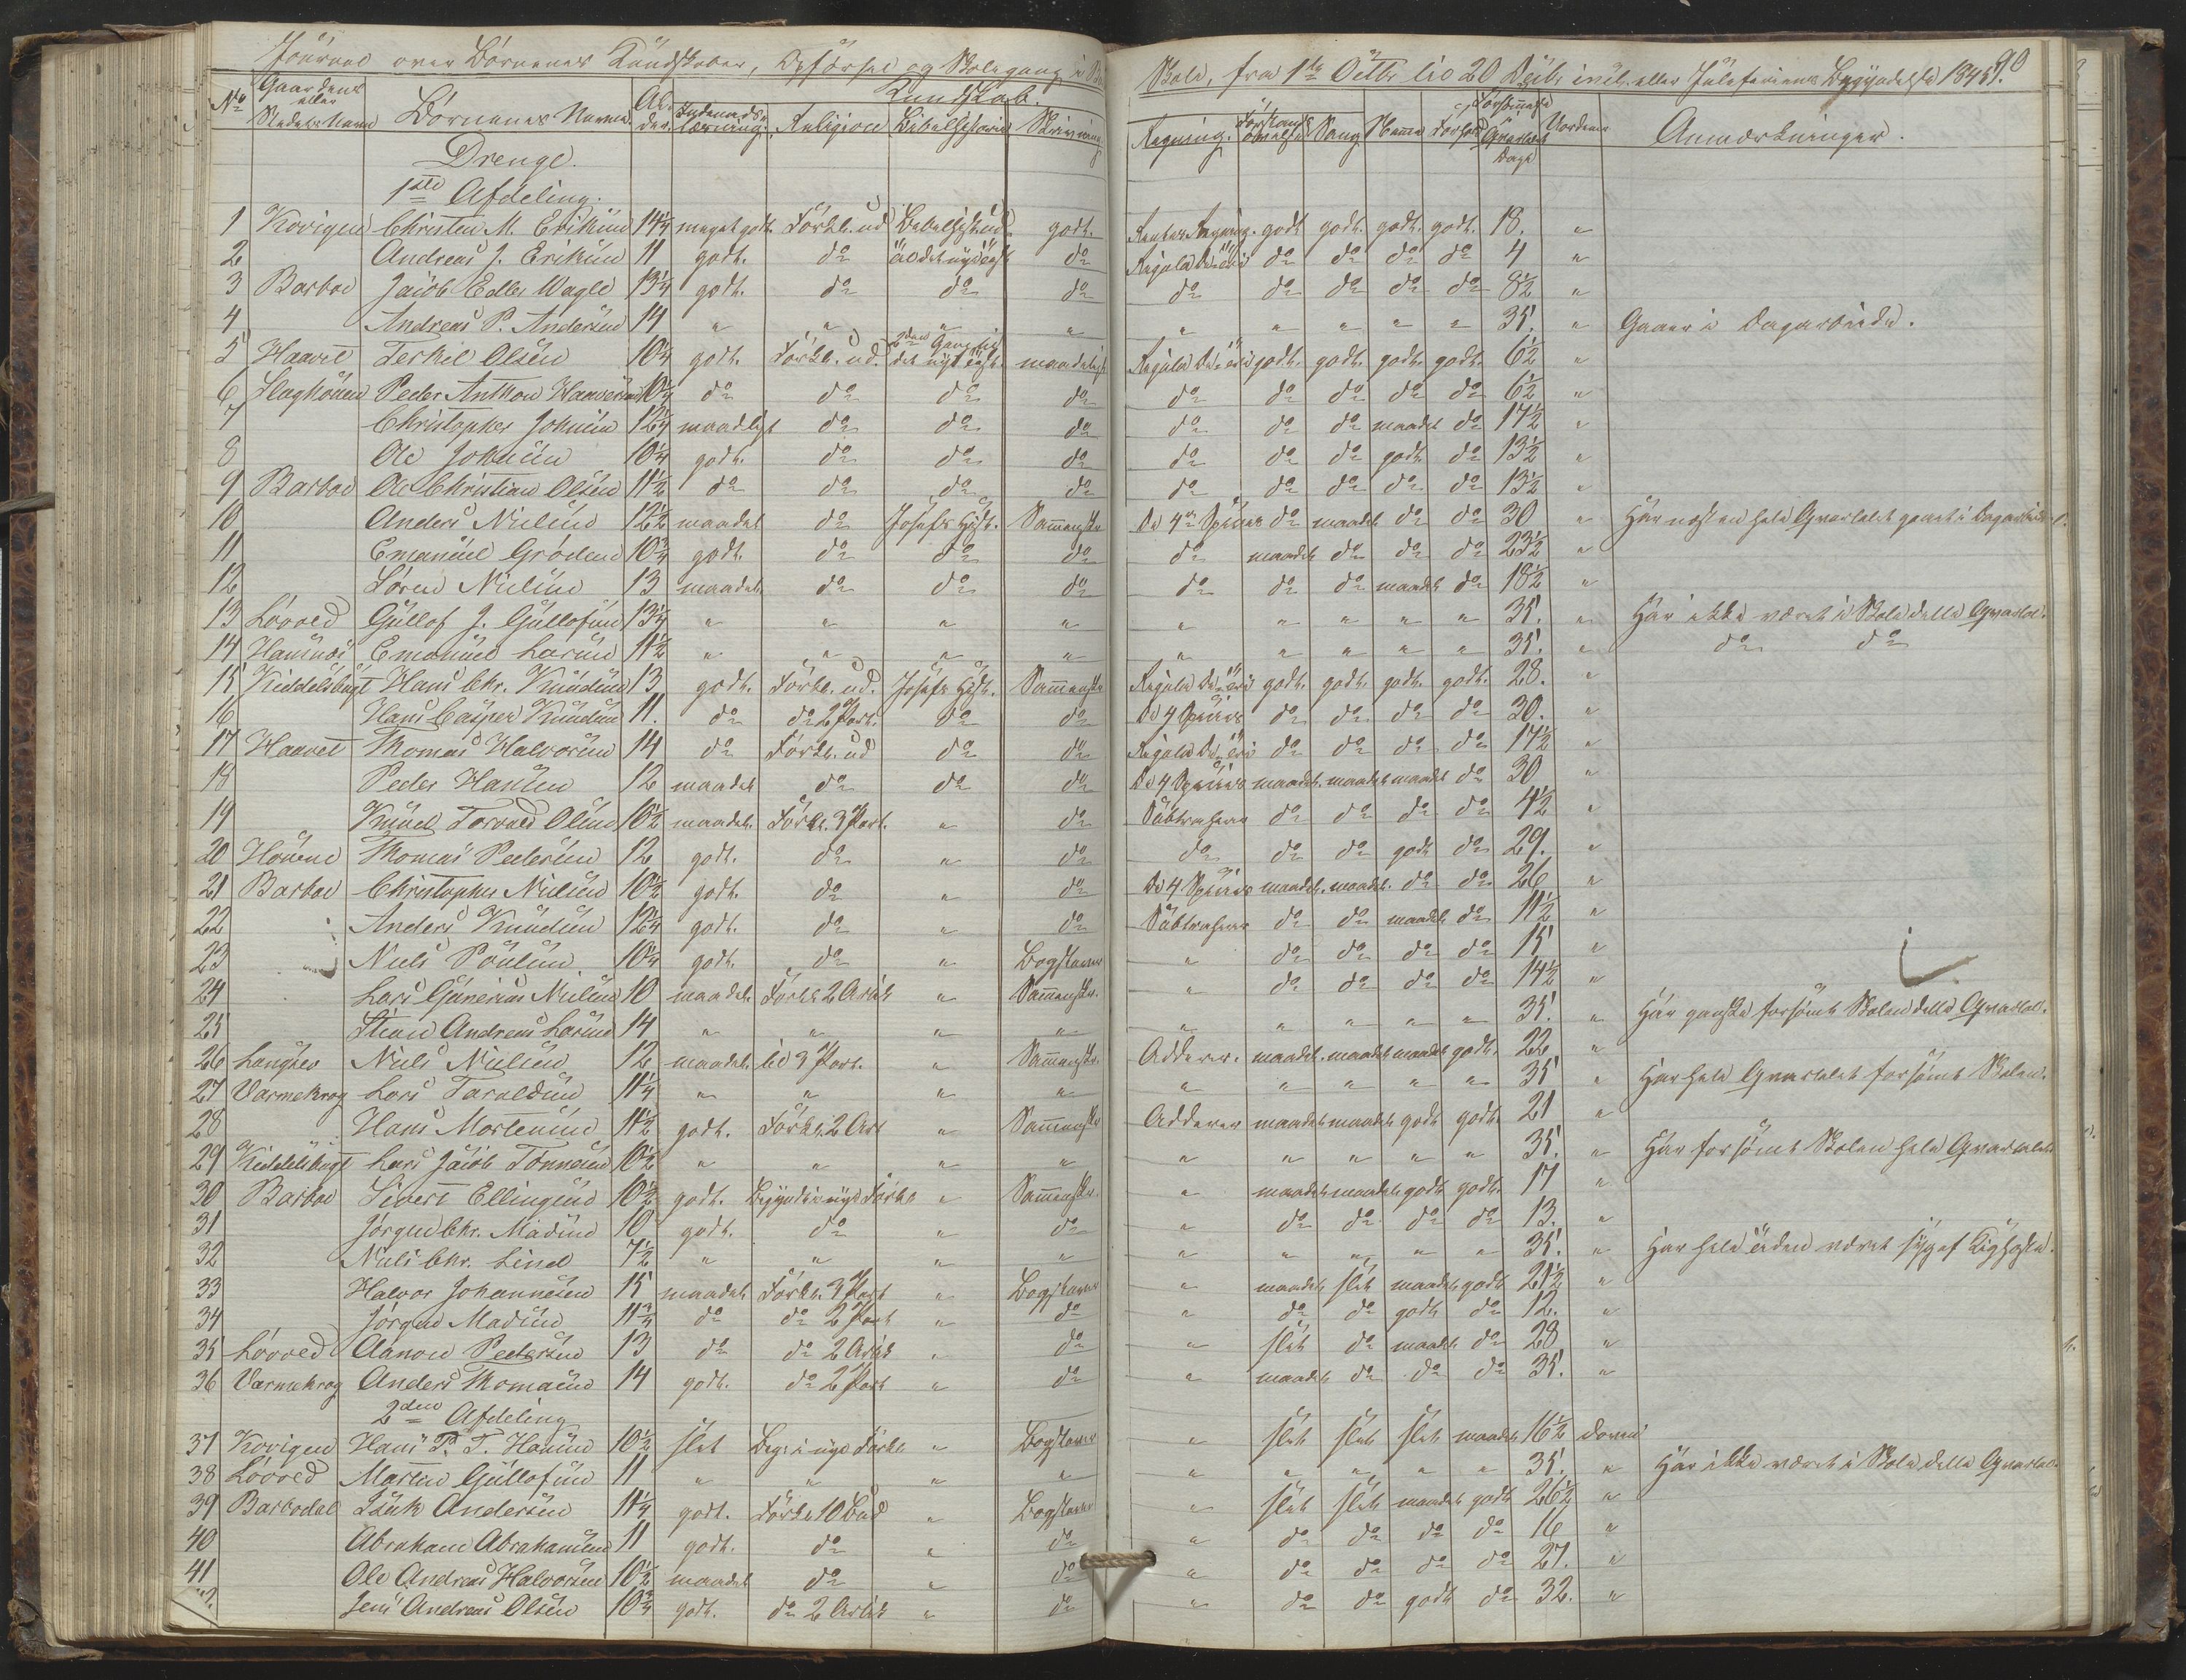 Journal over Børnenes Kundskaber, Opførsel og Skolegang i
Skole, fra 1ste Octbr til 20 Decbr incl. eller Juleferiens Begyndelse 1845. 90
No Gaardens eller Stedets Navn Børnenes Navne Alder Indenadslæsning Kundskab. Religion Bibelhistorie Skrivning Regning. Sang Forsømmelse Qvartalet Dage Anmærkninger.
Drenge.
1ste Afdeling.
1 Kovigen Christen M. Eriksen 14 1/4 meget godt Forkl. ud godt. godt godt. godt. godt. 18. "
2 Andreas J. Eriksen 11 godt. do do do do do do 4 "
3 Barboe Jacob Edler Wagle 13 1/4 godt. do do do do do do do do 8 1/2 "
4 Andreas P. Andersen 14 " " " " " " " " " 35. " Gaaer i Dagarbeide.
5 Haavet Terkil Olsen 10 1/4 godt. Forkl. ud. maadeligt godt. godt. godt. godt. 6 1/2 "
6 Peder Anthon 10 1/4 do do do do do do do do do 6 1/2 "
7 Christopher Johnsen 12 1/4 maadeligt do do do do do do maadel do 17 1/2 "
8 Ole Johnsen 10 1/4 godt. do do do do do do godt do 13 1/2 "
9 Barboe Ole Christian Olsen 11 1/2 do do do do do do do do do 13 1/2 "
10 Anders Nielsen 12 1/2 maadel do Josefs Hist. Sammenskr De 4 Species do maadel do do 30 " Har næsten hele Qvartalet gaaet i Dagarbeide.
11 Emanuel Grødem 10 3/4 godt. do do do do maadel do do do 23 1/2 "
12 Søren Nielsen 13 maadel. do do do do do do maadel do 18 1/2 "
13 Løvved Gullof J. Gullofsen 13 1/4 " " " " " " " " " 35. " Har ikke været i Skole dette Qvartal.
14 Emanuel Larsen 11 1/2 " " " " " " " " " 35. " do do
15 Kiddelsbugt Hans Chr. Knudsen 13 godt. Forkl. ud. Josefs Hist. Sammenskr godt. godt. godt. godt. 28. "
16 Hans Casper Knudsen 11. do do 2 Part. do do De 4 Species do do do do 30. "
17 Haavet Thomas Halvorsen 14 do Forkl. ud do do do do do do 17 1/2 "
18 Peder Hansen 12 maadel do do do De 4 Species maadel. maadel maadel do 30 "
19 Knud Torvald Olsen 10 1/2 maadel. Forkl. 3 Part. " do Subtraherer do do do do 4 1/2 "
20 Thomas Pedersen 12 godt. do " do do do do godt do 29. "
21 Barboe Christopher Nielsen 10 1/2 godt. do " do De 4 Species maadel. maadel. do do 26 "
22 Anders Knudsen 12 1/4 godt. do " do Subtraherer do do maadel do 11 1/2 "
23 Niels Poulsen 10 3/4 godt. do " Bogstaver " do do do do 15 "
24 Lars Gunerius Nielsen 10 maadel. Forkl. 2 Artik " Sammenskr. " do do do do 14 1/2 "
25 Stian Andreas Larsen 14 " " " " " " " " " 35. " Har ganske forsømt Skolen dette Qvartal.
26 Langsev Niels Nielsen 12 maadel. til 3 Part. " Sammenskr. Adderer. maadel. maadel maadel godt. 22 "
27 Varmekrog Lars Taraldsen 11 1/4 " " " " " " " " " 35 " Har hele Qvartalet forsømt Skolen.
28 Hans Mortensen 11 1/2 godt. Forkl. 2 Art " Sammenskr Adderer maadel maadel godt godt. 21 "
29 Kiddelsbugt Lars Jacob Tønnesen 10 1/2 " " " " " " " " " 35. " Har forsømt Skolen hele Qvartalet
30 Barboe Sivert Ellingsen 10 1/2 godt. Begyndt i nye Forkl " Sammenskr. " maadel maadel. godt godt. 17 "
31 Jørgen Chr. Madsen 10 godt. do " do " do do do do 13. "
32 Niels Chr. Lind 7 1/2 " " " " " " " " " 35. " Har hele Tiden været syg af Kighoste.
33 Halvor Johannesen 15 maadel. Forkl. 3 Part " Bogstaver " maadel. slet maadel. godt 21 1/2 "
34 Jørgen Madsen 11 3/4 do do 2 Part " do " do do godt do 12. "
35 Løvved Aanon Pedersen 13 do do 2 Artik " do " slet do maadel do 28 "
36 Varmekrog Anders Thomasen 14 godt. do 2 Part " do " maadel do do do 35. "
2den Afdeling
37 Kovigen Hans P. T. Hansen 10 1/2 slet Beg. i nye Forkl " Bogstaver " slet slet slet maadel 16 1/2
38 Løvved Martin Gullofsen 11 " " " " " " " " " 35. " Har ikke været i Skole dette Qvartal.
39 Barbodal Isak Andersen 11 1/4 godt. Forkl. 10 Bud " Bogstaver " slet slet maadel godt 26 1/2 "
40 Abraham Abrahamsen 11 godt. do " do " do do do do 16 "
41 Ole Andreas Halvorsen 10 1/2 maadel do " do " do do do do 27. "
Jens Andreas Olsen 10 3/4 godt. do 2 Artik " do " do do godt do 32. "